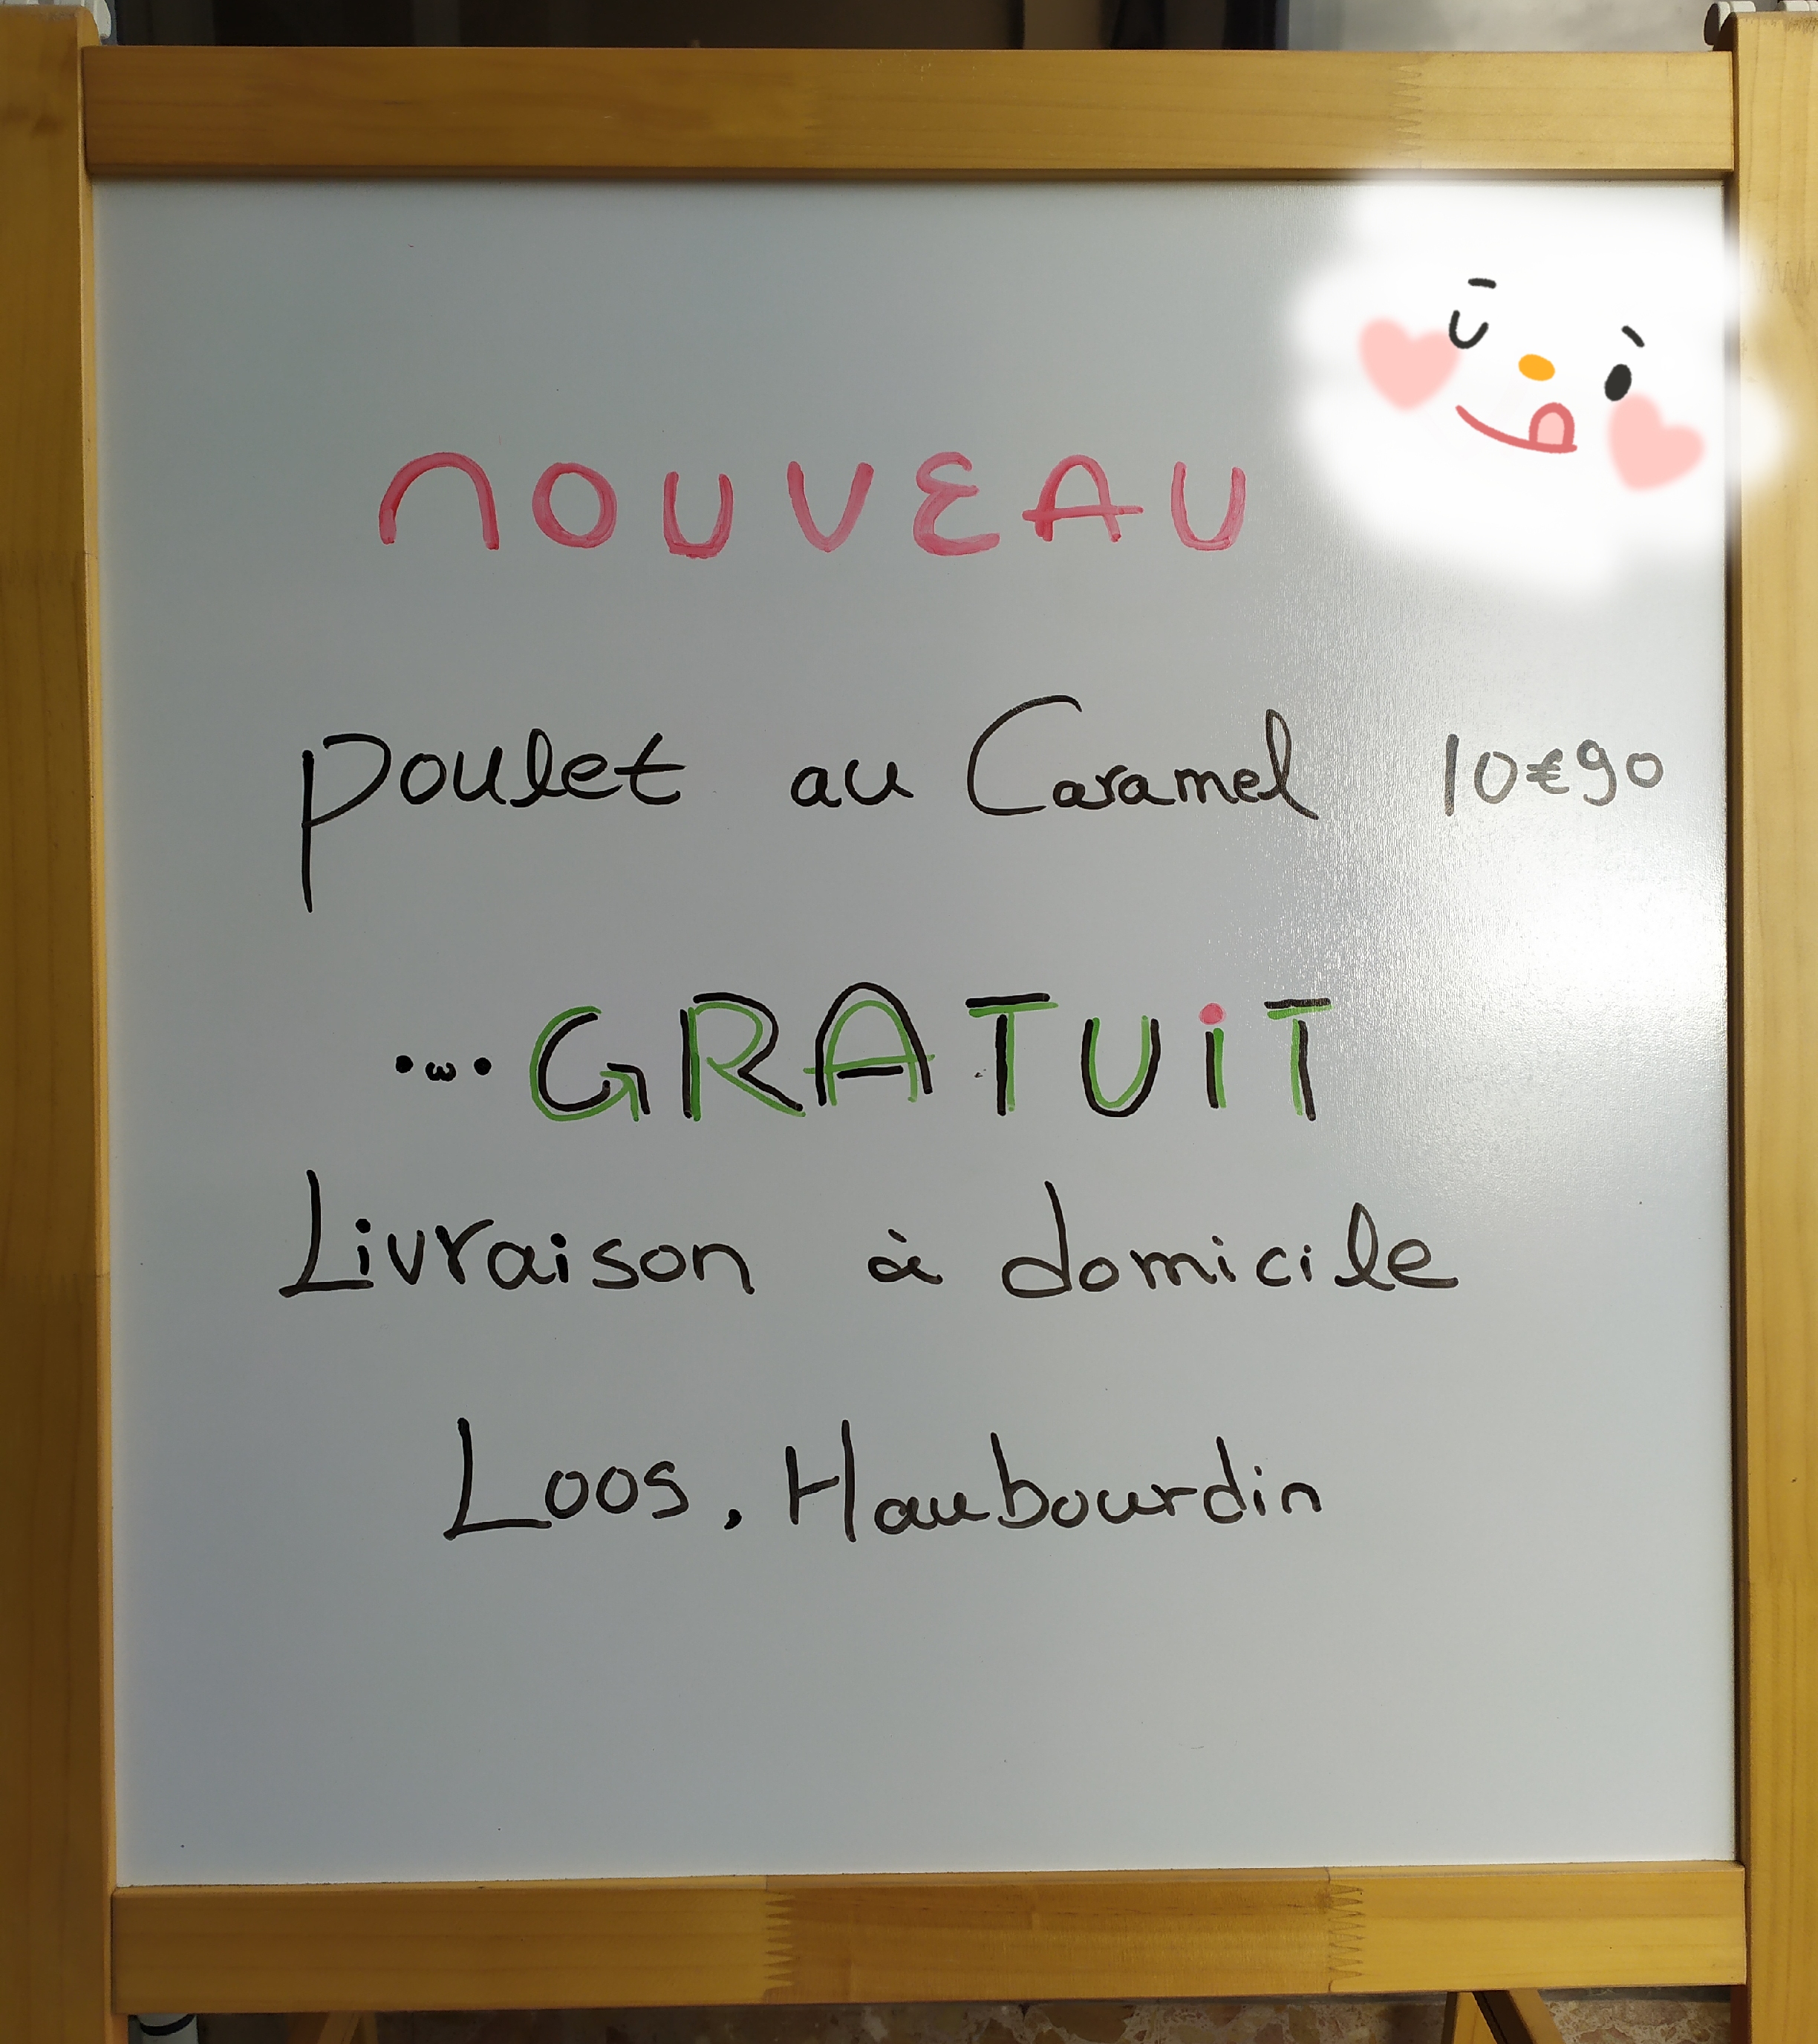 NOUVEAU
Poulet au Caramel 10€90
•ω• GRATUiT
Livraison à domicile
Loos, Haubourdin